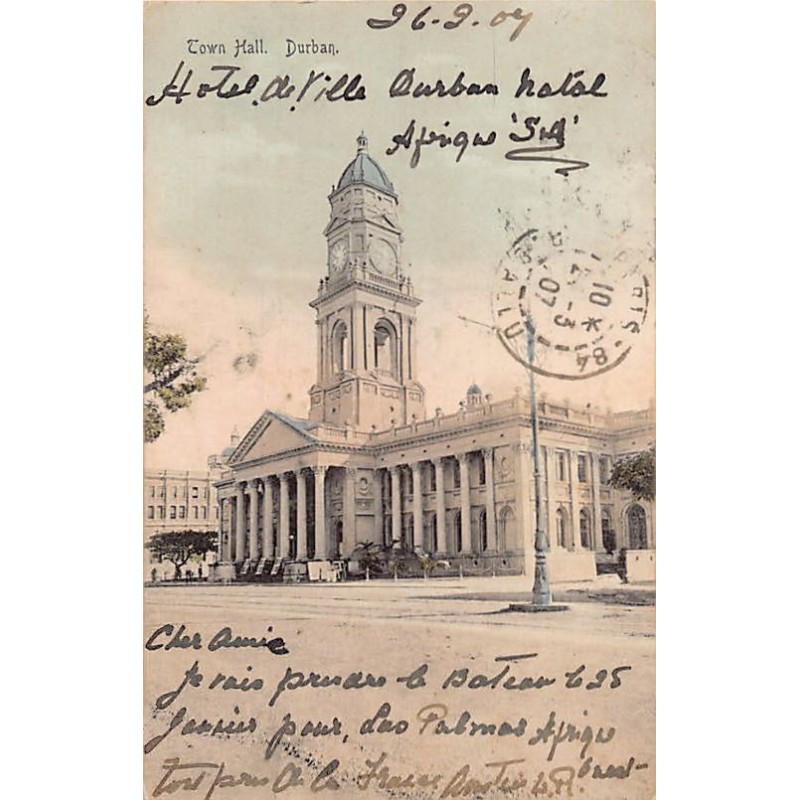 26-2. 07
Town Hall. Durban.
Hotel de Ville Durban Natal
Afrique 'Sud'
PARIS · 84
10 *
-3
07
Cher Amie
Je vais prendre le Bateau le 25
Janvier pour, Las Palmas Afrique
Ouest-
Tout près de la